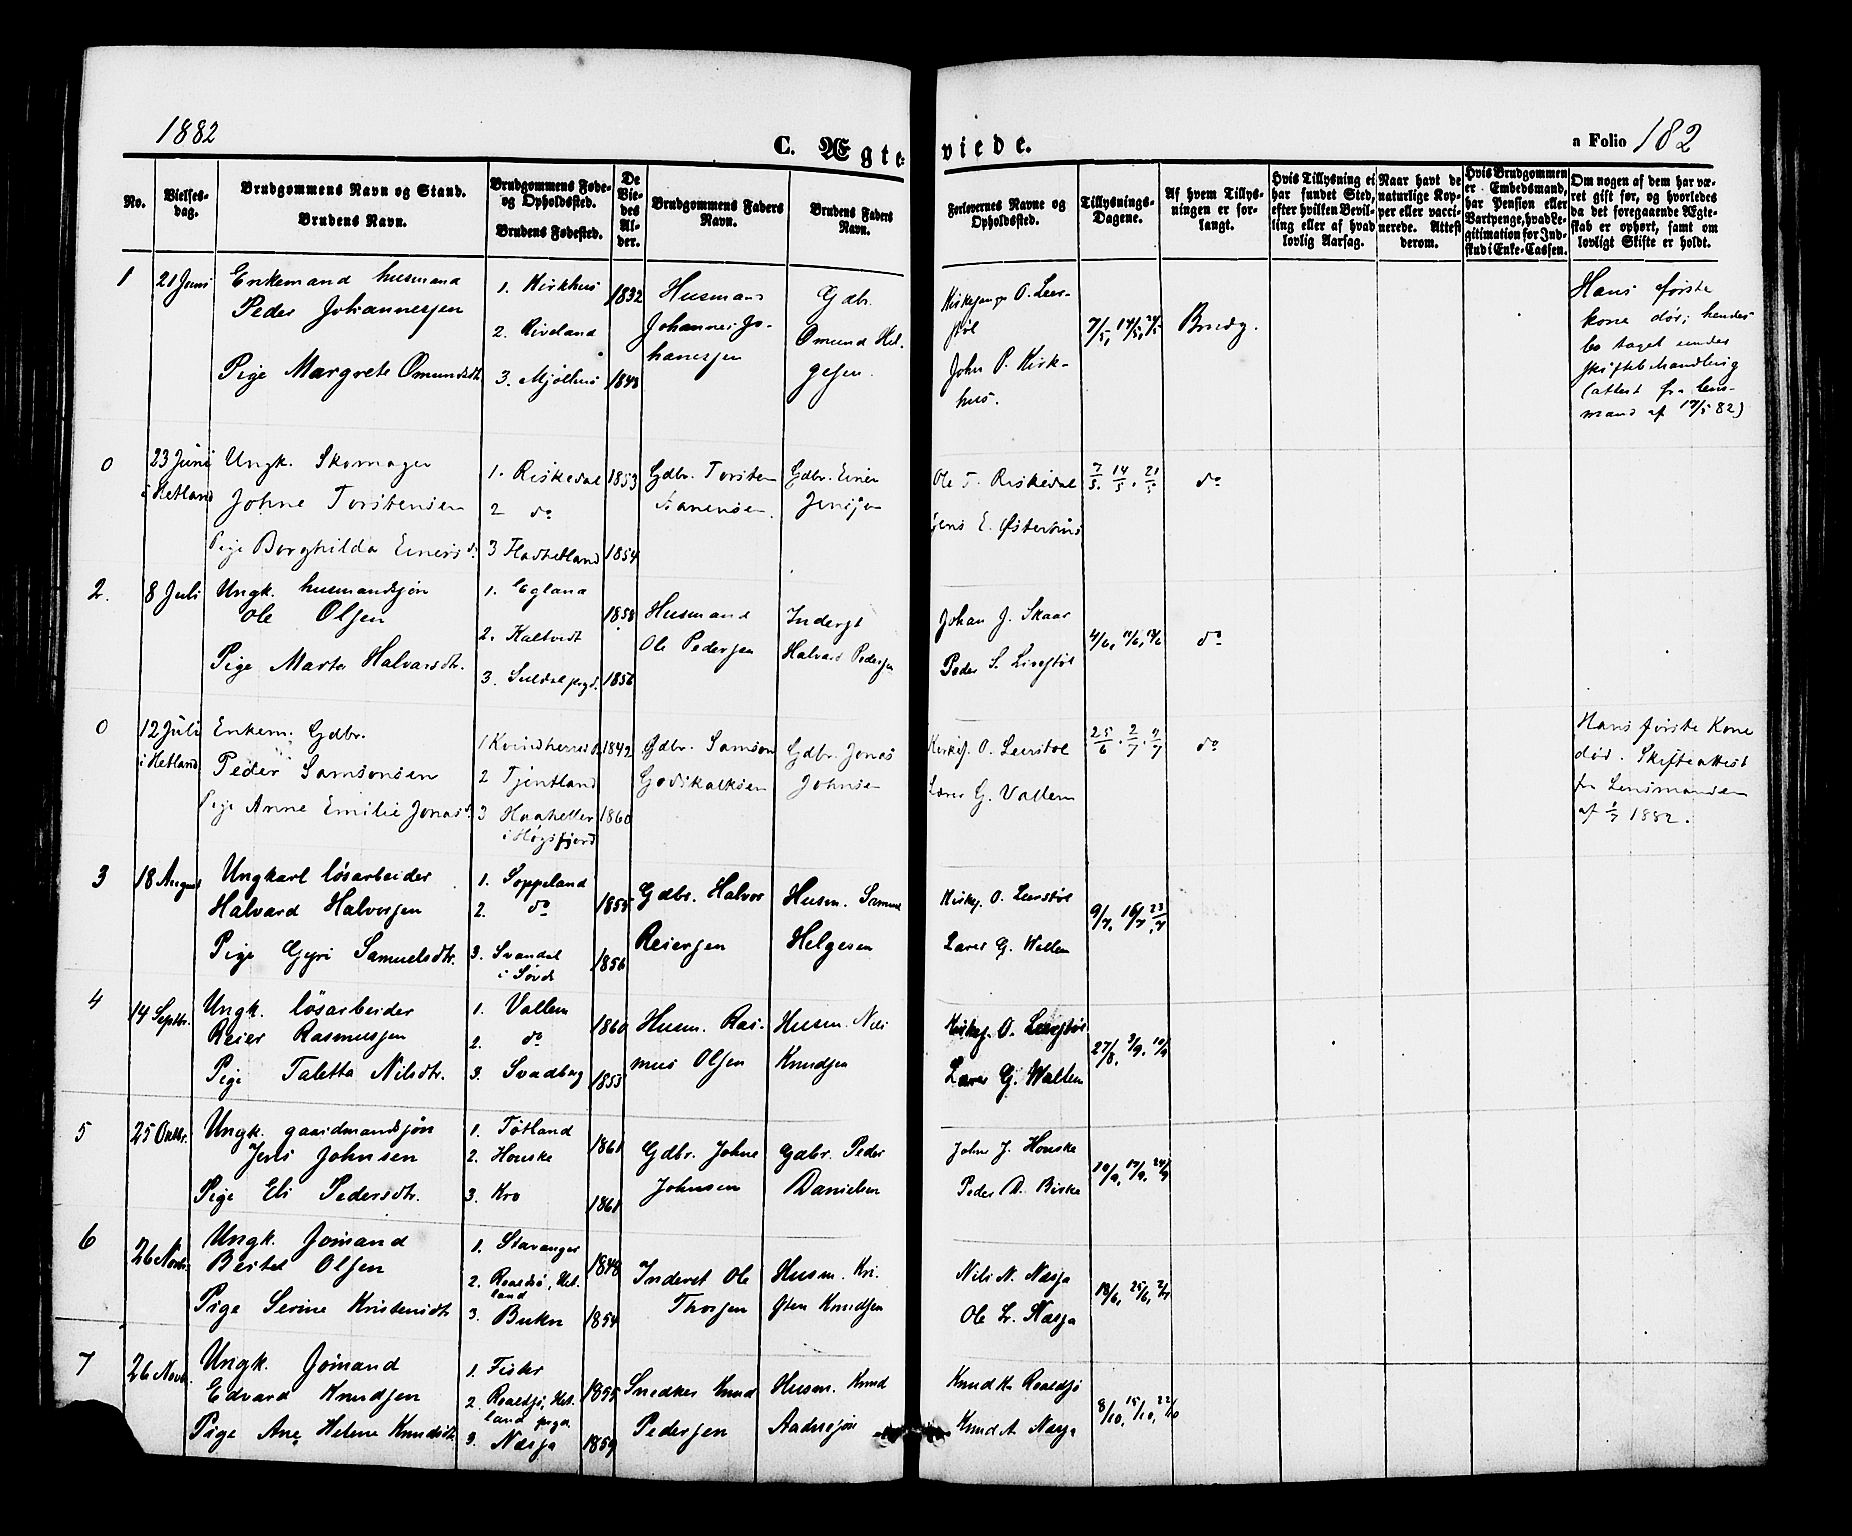 1882
C. Ægteviede.
a Folio 182
No.
Vielses-
dag.
Brudgommens Navn og Stand.
Brudens Navn.
Brudgommens Føde-
og Opholdssted.
Brudens Fødested.
De
Vie-
des
Al-
der.
Brudgommens Faders
Navn.
Brudens Faders
Navn.
Forlovernes Navne og
Opholdssted.
Tillysnings-
Dagene.
Af hvem Tillys-
ningen er for-
langt.
Hvis Tillysning ei
har fundet Sted,
efter hvilken Bevil-
ling eller af hvad
lovlig Aarsag.
Naar havt de
naturlige Kop-
per eller vacci-
nerede. Attest
derom.
Hvis Brudgommen
er Embedsmand,
har Pension eller
Vartpenge, hvad Le-
gitimation for Ind-
skud i Enke-Cassen.
Om nogen af dem har væ-
ret gift før, og hvorledes
da det foregaaende Ægte-
skab er ophørt, samt om
lovligt Skifte er holdt.
1
21 Juni
Enkemand husmand
Peder Johannesjen
Pige Margrete Omundsdtr
1. Kirkhus
2. Riveland
3. Mjølhus
1832
1848
Husmand
Johannes Jo-
hanesjen
Gdbr.
Omund Hel-
gesen.
Kirkesanger O. Leer-
støl
John P. Kirk-
hus.
7/5, 14/5, 21/5
Brudg.
Hans første
kone dør; hendes
bo taget under
skiftebehandling
(attest fra lens-
mand af 17/5 82)
0
23 Juni
i Hetland
Ungk. Skomager
Johne Torstensen
Pige Borghilda Einersd.
1. Riskedal
2 do
3 Hadhetland
1853
1854
Gdbr. Torsten
Aanensen.
Gdbr. Einer
Jensjen
Ole T. Riskedal
Jens E. Østerhus
7/5. 14/5. 21/5
do
2.
8 Juli
Ungk. husmandssøn
Ole Olsen
Pige Marta Halvarsdtr.
1. Egland
2. Kaltvedt
3. Suldal prgd.
1858
1856
Husmand
Ole Pedersen
Inderst
Halvard Pedersen
Johan J. Skaar
Peder S. Livestøl
4/6, 11/6, 18/6
do
0
12 Juli
i Hetland
Enkem. Gdbr.
Peder Samsonsen
Pige Anne Emilie Jonasd.
1 Kvindherred
2 Tjentland
3 Haaheller
i Høgsfjord
1842
1860
Gdbr. Samson
Godskalksen
Gdbr. Jonas
Johnsen
Kirkes. O. Leerstøl
Lars G. Vallem
25/6. 2/7. 9/7
do
Hans første Kone
død. Skifteattest
fra Lensmanden
1882.
3
18 August
Ungkarl løsarbeider
Halvard Halvorsen
Pige Gyri Samuelsdtr.
1. Soppeland
2. do
3. Svandal
i Søvde
1855
1856
Gdbr. Halvor
Reiersen
Husm. Samuel
Helgesen
Kirkes. O. Leerstøl
Lars G. Wallem
9/7, 16/7, 23/7
4
14 Septbr.
Ungk. løsarbeider
Reier Rasmussen
Pige Taletta Nilsdtr.
1. Vallem
2. do
3. Svadberg
1860
1855
Husm. Ras-
mus Olsen
Husm. Nils
Knudsen
Kirkes. O. Leerstøl
Lars G. Wallem
27/8, 3/9, 10/9
5
25 Octbr.
Ungk. gaardmandssøn
Jens Johnsen
Pige Eli Pedersdtr.
1. Tøtland
2. Houske
3. Kro
1861
1861
Gdbr. Johne
Johnsen
Gdbr. Peder
Danielsen
John J. Houske
Peder D. Birke
10/9, 17/9, 24/9
6
26 Novbr.
Ungk. Jomand
Bertel Olsen
Pige Serine Kristensdtr
1. Stavanger
2. Roaldsø, Het-
land
3. Bukn
1848
1854
Inderst Ole
Thorsen
Husm. Kri-
sten Knudsen
Nils N. Næsja
Ole L. Næsja
18/6, 25/6, 2/7
7
26 Novbr.
Ungk. Jomand
Edvard Knudsen
Pige Ane Helene Knudsdtr
1. Fister
2. Roaldsø, Het-
land prgd
3. Næsja
1855
1859
Snedker Knud
Pedersen
Husm. Knud
Knud K. Roaldsø
Knud A. Næsja
8/10, 15/10, 22/10